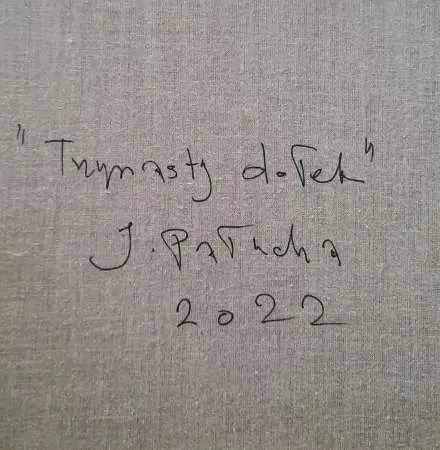 "Trzynasty dołek"
J. Pałucha
2022